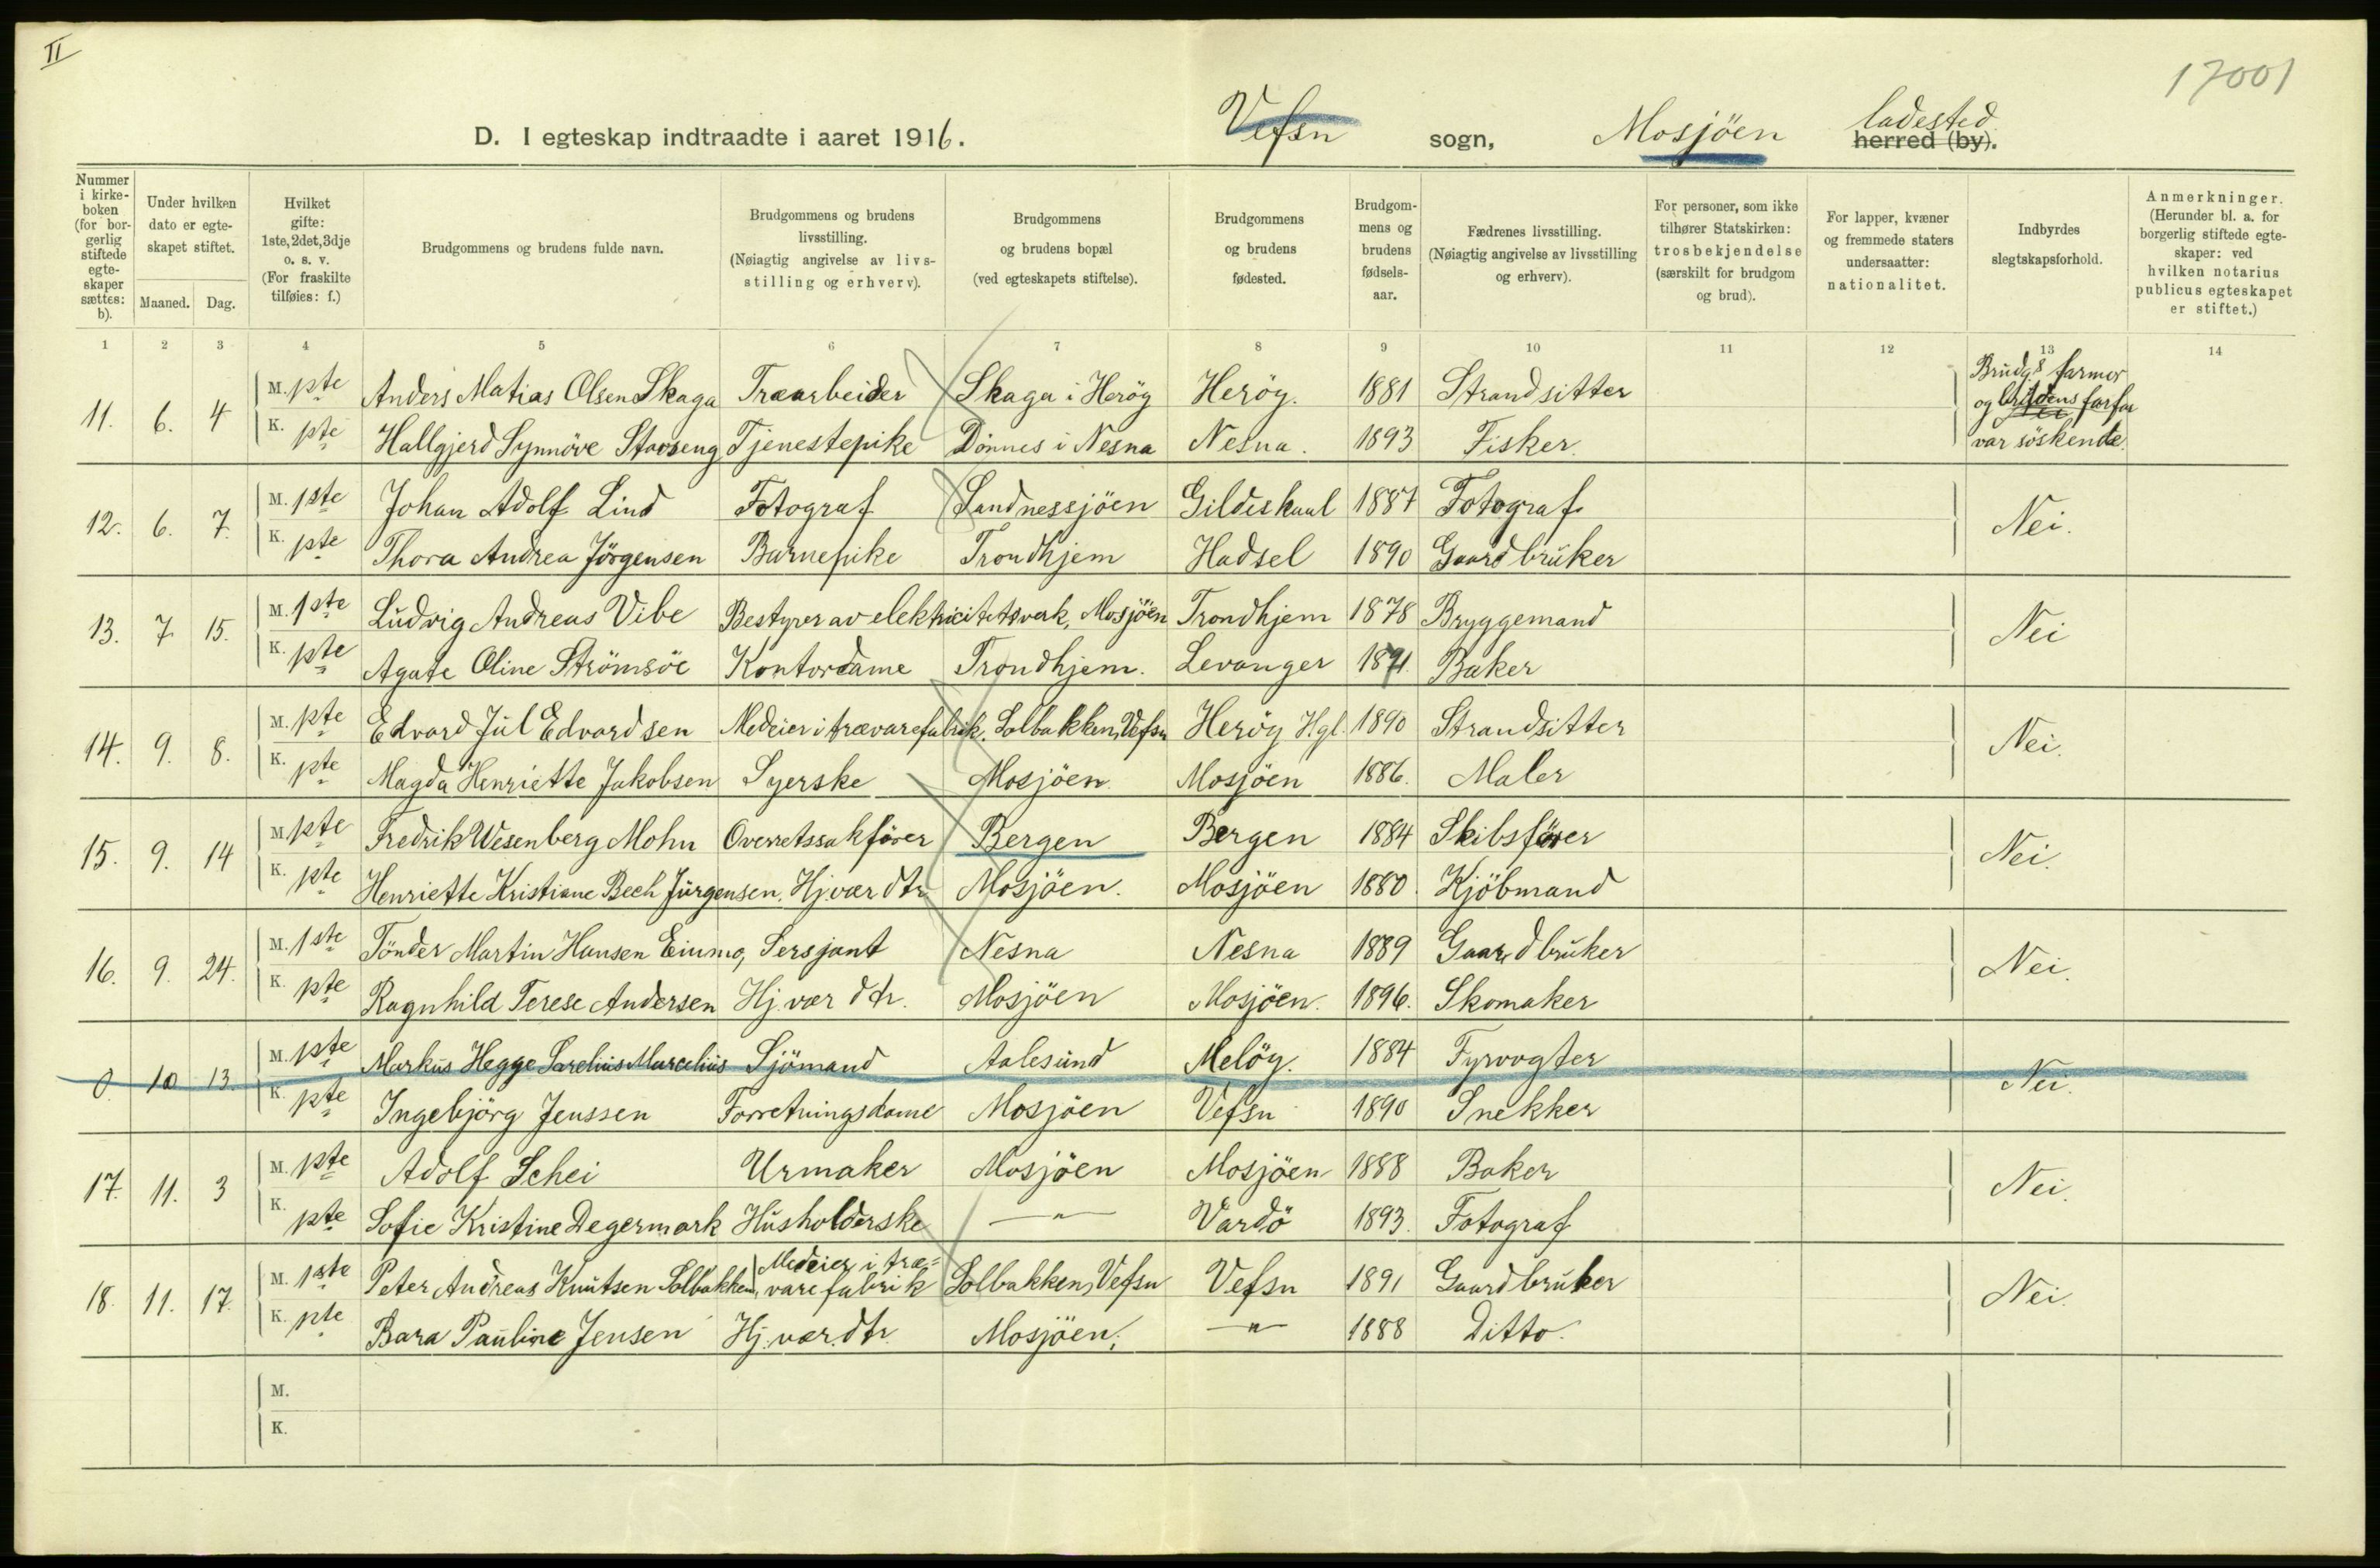 II
17001
D. I egteskap indtraadte i aaret 1916. Vefsn sogn, Mosjöen ladested herred (by).
Nummer i kirkeboken (for borgerlig stiftede egteskaper sættes: b).
Under hvilken dato er egteskapet stiftet.
Maaned. Dag.
Hvilket gifte: 1ste, 2det, 3dje o. s. v. (For fraskilte tilføies: f.)
Brudgommens og brudens fulde navn.
Brudgommens og brudens livsstilling. (Nøiagtig angivelse av livsstilling og erhverv).
Brudgommens og brudens bopæl (ved egteskapets stiftelse).
Brudgommens og brudens fødested.
Brudgommens og brudens fødselsaar.
Fædrenes livsstilling. (Nøiagtig angivelse av livsstilling og erhverv).
For personer, som ikke tilhører Statskirken: trosbekjendelse (særskilt for brudgom og brud).
For lapper, kvæner og fremmede staters undersaatter: nationalitet.
Indbyrdes slegtskapsforhold.
Anmerkninger. (Herunder bl. a. for borgerlig stiftede egteskaper: ved hvilken notarius publicus egteskapet er stiftet.)
1 2 3 4 5 6 7 8 9 10 11 12 13 14
11. 6. 4 M. 1ste Anders Matias Olsen Skaga Træarbeider Skaga i Heröy Heröy. 1881 Strandsitter Brudg.s farmor og brudens farfar var söskende.
K. 1ste Hallgjerd Synnöve Storseng Tjenestepike Dönnes i Nesna Nesna. 1893 Fisker.
12. 6. 7. M. 1ste Johan Adolf Lind Fotograf Sandnessjöen Gildeskaal 1887 Fotograf Nei.
K. 1ste Thora Andrea Jörgensen Barnepike Trondhjem Hadsel 1890 Gaardbruker
13. 7. 15. M. 1ste Ludvig Andreas Vibe Bestyrer av elektricitetsverk, Mosjöen Trondhjem 1878 Bryggemand Nei
K. 1ste Agate Oline Strömsöe Kontordame Trondhjem. Levanger Baker
14. 9. 8. M. 1ste Edvard Jul Edvardsen Medeier i trævarefabrik. Solbakken, Vefsn Heröy Hgl. 1890 Strandsitter Nei.
K. 1ste Magda Henriette Jakobsen Syerske Mosjöen. Mosjöen 1886. Maler
15. 9. 14 M. 1ste Fredrik Wesenberg Mohn Overretssakförer Bergen Bergen 1884 Skibsförer Nei.
K. 1ste Henriette Kristiane Bech Jürgensen, Hj. vær dtr. Mosjöen. Mosjöen 1880. Kjöbmand
16. 9. 24. M. 1ste Tönder Martin Hansen Einmo, Sersjant Nesna Nesna 1889 Gaardbruker Nei.
K. 1ste Ragnhild Terese Andersen Hj. vær dtr. Mosjöen Mosjöen. 1896. Skomaker
0. 10 13. M. 1ste Markus Hegge Sarelius Marcelius Sjömand Aalesund Melöy. 1884 Fyrvogter Nei.
K. 1ste Ingebjörg Jenssen Forretningsdame Mosjöen Vefsn 1890 Snekker
17. 11. 3 M. 1ste Adolf Schei Urmaker Mosjöen Mosjöen 1888 Baker Nei.
K. 1ste Sofie Kristine Degermark Husholderske —"— Vardö 1893. Fotograf
18. 11. 17. M. 1ste Peter Andreas Knutsen Solbakken, Medeier i trævarefabrik Solbakken, Vefsn Vefsn 1891 Gaardbruker Nei.
K. 1ste Bara Pauline Jensen Hj. vær. dtr. Mosjöen. —"— 1888 Ditto.
M.
K.